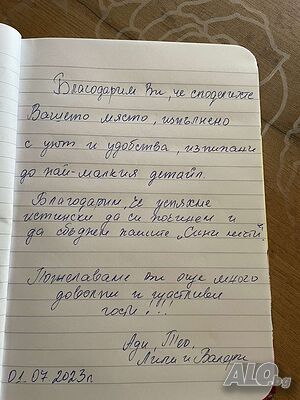 Благодарим Ви, че споделихте
Вашето място, изпълнено
с уют и удобства, изпипани
до най-малкия детайл.
Благодарим, че успяхме
истински да си починем и
да сбъднем нашите "Сини мечти".
Пожелаваме Ви още много
доволни и щастливи
гости!!!
Ади, Тео,
Лили и Валери
01.07.2023г.
ALO.bg